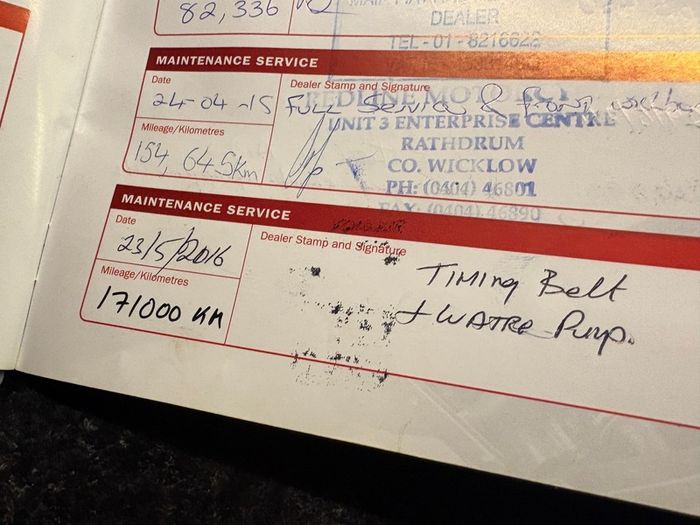 82,336
DEALER
TEL-01-8216622
MAINTENANCE SERVICE
Date
Dealer Stamp and Signature
24-04-15
Full Service & front
REDLINE MOTOR
Mileage/Kilometres
UNIT 3 ENTERPRISE CENTRE
RATHDRUM
154,645km
CO. WICKLOW
PH: (0404) 46801
FAX: (0404) 46890
MAINTENANCE SERVICE
Date
Dealer Stamp and Signature
23/5/2016
Timing Belt
Mileage/Kilometres
+ WATRE Pump.
171000 KM